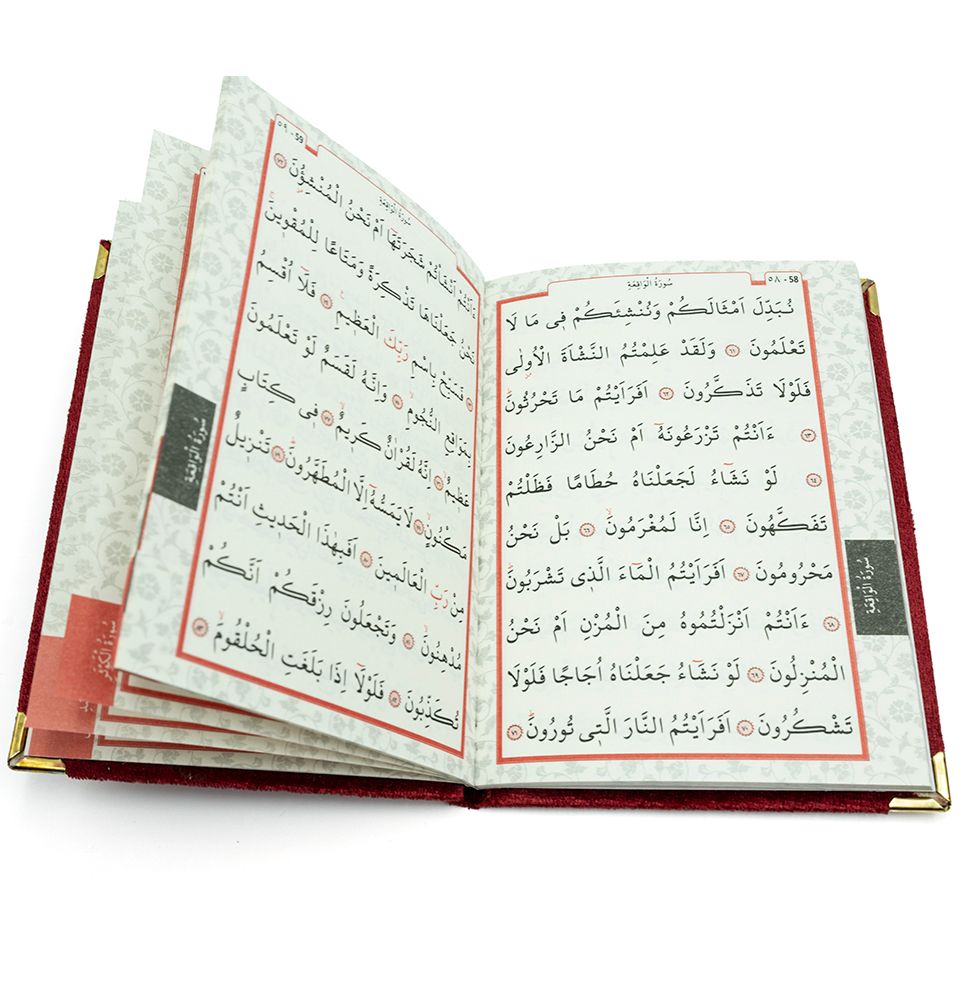 سُورَةُ الْوَاقِعَةِ
٥٨ - 58
نُبَدِّلَ اَمْثَالَكُمْ وَنُنْشِئَكُمْ ف۪ي مَا لَا
تَعْلَمُونَ ﴿٦١﴾ وَلَقَدْ عَلِمْتُمُ النَّشْاَةَ الْاُولٰى
فَلَوْلَا تَذَكَّرُونَ ﴿٦٢﴾ اَفَرَاَيْتُمْ مَا تَحْرُثُونَۜ
﴿٦٣﴾ ءَاَنْتُمْ تَزْرَعُونَهُٓ اَمْ نَحْنُ الزَّارِعُونَ
﴿٦٤﴾ لَوْ نَشَٓاءُ لَجَعَلْنَاهُ حُطَامًا فَظَلْتُمْ
تَفَكَّهُونَ ﴿٦٥﴾ اِنَّا لَمُغْرَمُونَۙ ﴿٦٦﴾ بَلْ نَحْنُ
مَحْرُومُونَ ﴿٦٧﴾ اَفَرَاَيْتُمُ الْمَٓاءَ الَّذ۪ي تَشْرَبُونَۜ
﴿٦٨﴾ ءَاَنْتُمْ اَنْزَلْتُمُوهُ مِنَ الْمُزْنِ اَمْ نَحْنُ
الْمُنْزِلُونَ ﴿٦٩﴾ لَوْ نَشَٓاءُ جَعَلْنَاهُ اُجَاجًا فَلَوْلَا
تَشْكُرُونَ ﴿٧٠﴾ اَفَرَاَيْتُمُ النَّارَ الَّت۪ي تُورُونَۜ ﴿٧١﴾
سُورَةُ الْوَاقِعَةِ
٥٩ - 59
سُورَةُ الْوَاقِعَةِ
ءَاَنْتُمْ اَنْشَأْتُمْ شَجَرَتَهَٓا اَمْ نَحْنُ الْمُنْشِؤُ۫نَ ﴿٧٢﴾
نَحْنُ جَعَلْنَاهَا تَذْكِرَةً وَمَتَاعًا لِلْمُقْو۪ينَۚ
﴿٧٣﴾ فَسَبِّحْ بِاسْمِ رَبِّكَ الْعَظ۪يمِ۟ ﴿٧٤﴾ فَلَٓا اُقْسِمُ
بِمَوَاقِعِ النُّجُومِۙ ﴿٧٥﴾ وَاِنَّهُ لَقَسَمٌ لَوْ تَعْلَمُونَ
عَظ۪يمٌۙ ﴿٧٦﴾ اِنَّهُ لَقُرْاٰنٌ كَر۪يمٌۙ ﴿٧٧﴾ ف۪ي كِتَابٍ
مَكْنُونٍۙ ﴿٧٨﴾ لَا يَمَسُّهُٓ اِلَّا الْمُطَهَّرُونَۜ ﴿٧٩﴾ تَنْز۪يلٌ
مِنْ رَبِّ الْعَالَم۪ينَ ﴿٨٠﴾ اَفَبِهٰذَا الْحَد۪يثِ اَنْتُمْ
مُدْهِنُونَۙ ﴿٨١﴾ وَتَجْعَلُونَ رِزْقَكُمْ اَنَّكُمْ
تُكَذِّبُونَ ﴿٨٢﴾ فَلَوْلَٓا اِذَا بَلَغَتِ الْحُلْقُومَۙ ﴿٨٣﴾
سُورَةُ الْوَاقِعَةِ